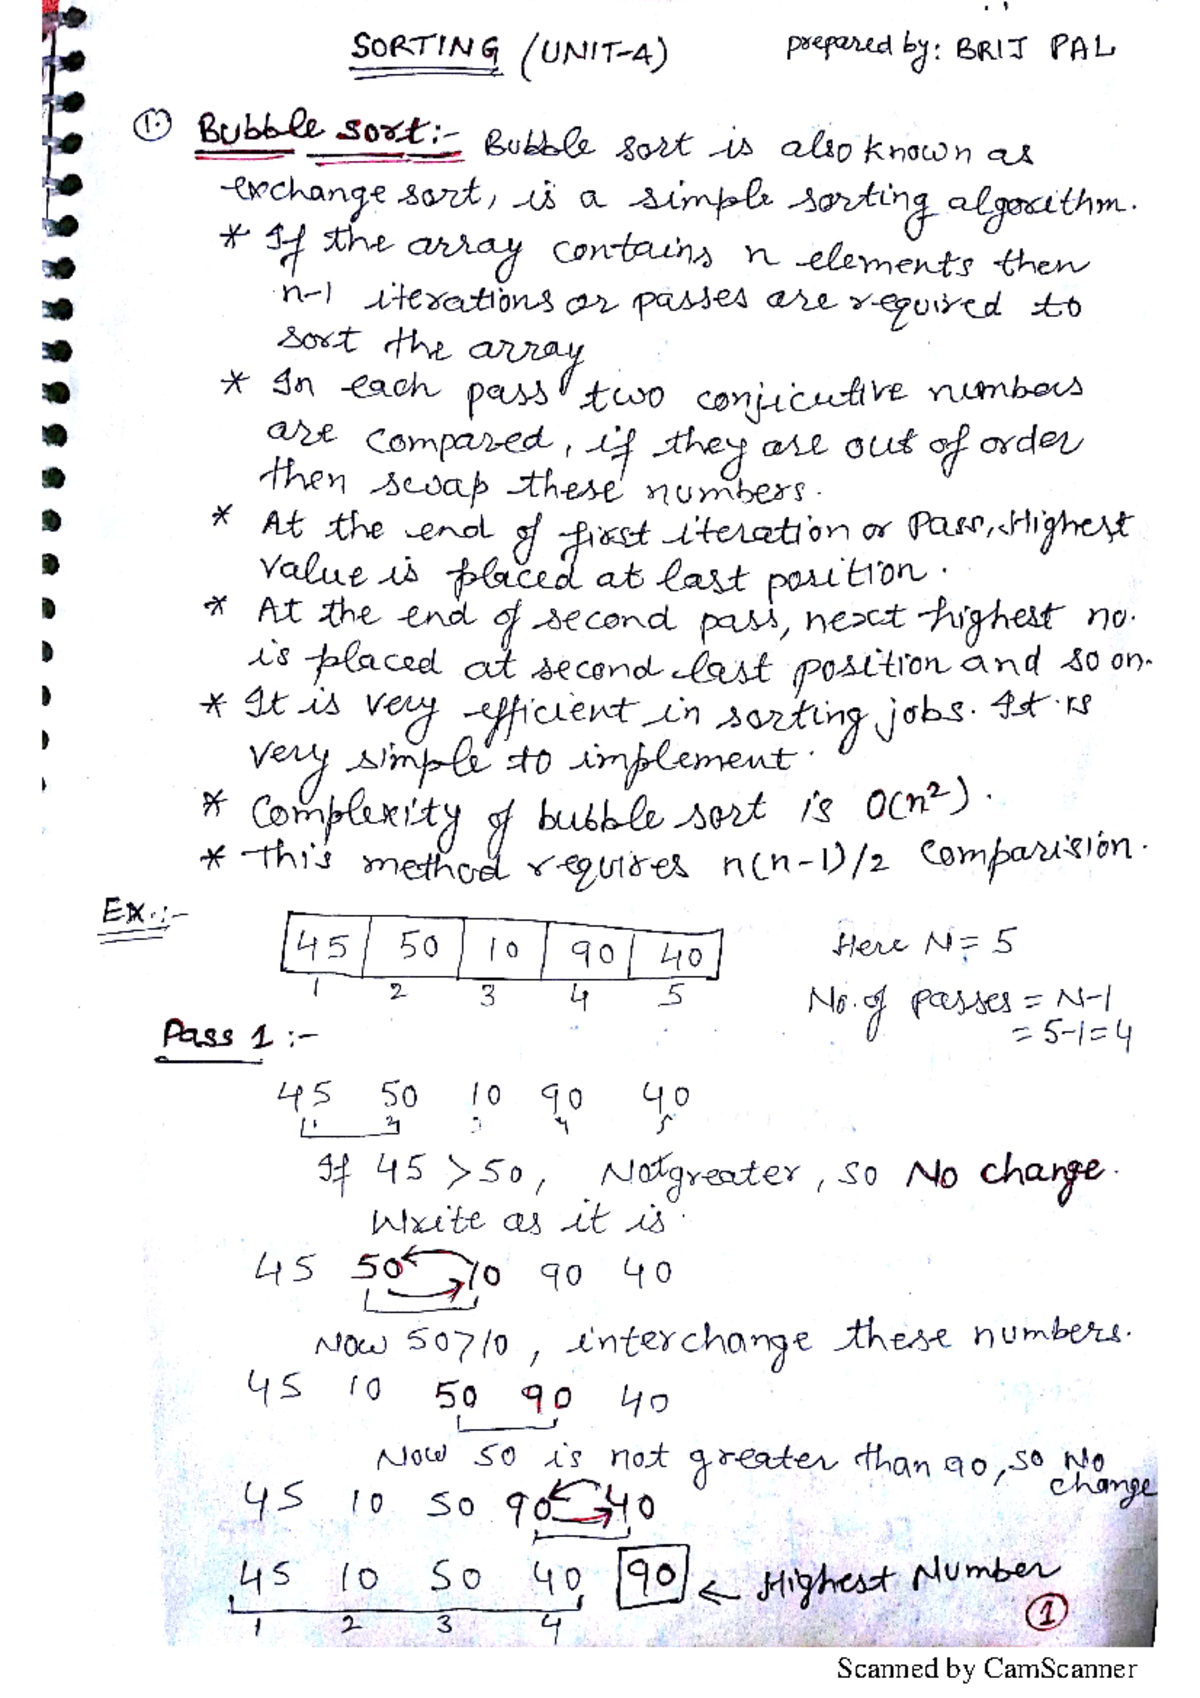 SORTING (UNIT-4) prepared by: BRIJ PAL
1. Bubble sort:- Bubble sort is also known as
exchange sort, is a simple sorting algorithm.
* If the array contains n elements then
n-1 iterations or passes are required to
sort the array
* In each pass two conjicutive numbers
are compared, if they are out of order
then swap these numbers.
* At the end of first iteration or Pass, Highest
value is placed at last position.
* At the end of second pass, next highest no.
is placed at second last position and so on.
* It is very efficient in sorting jobs. It is
very simple to implement.
* Complexity of bubble sort is O(n²).
* This method requires n(n-1)/2 comparision.
Ex.:-
45 50 10 90 40 Here N = 5
1 2 3 4 5 No. of passes = N-1
= 5-1=4
Pass 1 :-
45 50 10 90 40
1 2 3 4 5
If 45 > 50, Not greater, so No change.
Write as it is.
45 50 10 90 40
Now 50>10, interchange these numbers.
45 10 50 90 40
Now 50 is not greater than 90, so No
change
45 10 50 90 40
45 10 50 40 90 ← Highest Number
1 2 3 4
1
Scanned by CamScanner